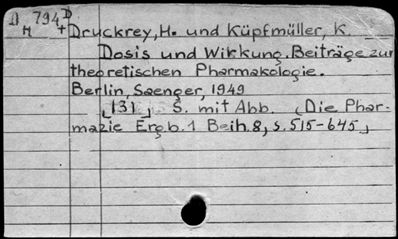 D 794 D
M + Druckrey, H. und Küpfmüller, K.
Dosis und Wirkung. Beiträge zur
theoretischen Pharmakologie.
Berlin, Saenger, 1949
[131] S. mit Abb. (Die Phar-
mazie Erg.b. 1 Beih. 8, S. 515-645)